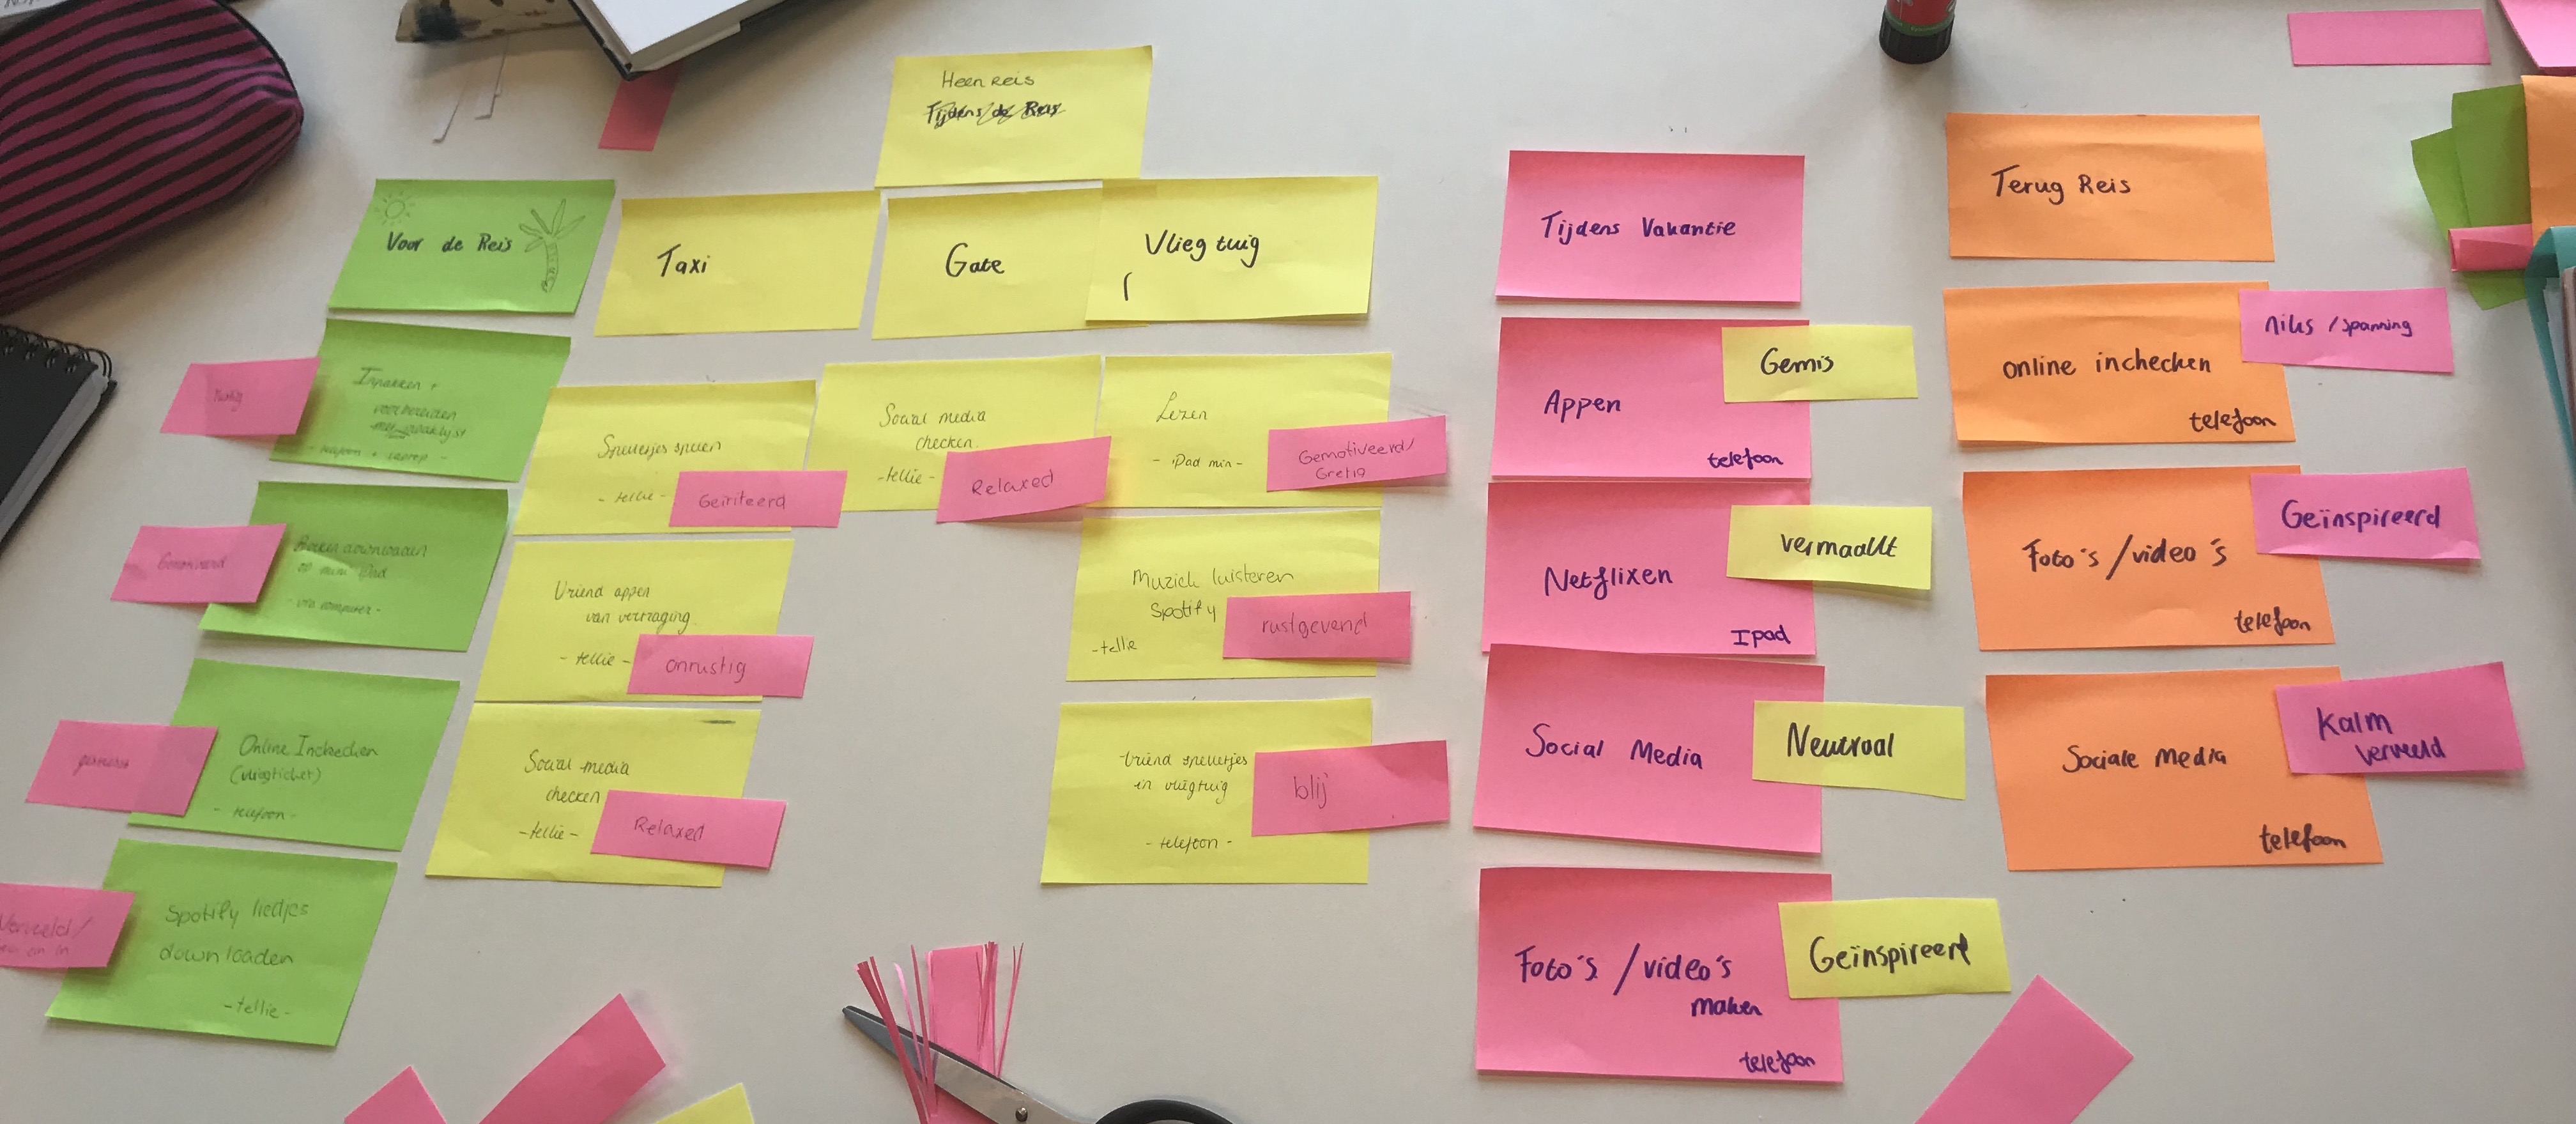 Heen reis
Tijdens de Reis
Voor de Reis
Inpakken +
voorbereiden
- telefoon + laptop -
downloaden
op mini iPad
- via computer -
Online Inchecken
(vliegticket)
- telefoon -
gestresst
Spotify liedjes
downloaden
- tellie -
Verveeld/
Taxi
Spelletjes spelen
- tellie -
Geïriteerd
Vriend appen
van vertraging
- tellie -
onrustig
Social media
checken
- tellie -
Relaxed
Gate
Social media
checken
- tellie -
Relaxed
Vliegtuig
Lezen
- iPad mini -
Gemotiveerd/
Gretig
Muziek luisteren
Spotify
- tellie
rustgevend
Vriend spelletjes
in vliegtuig
- telefoon -
blij
Tijdens Vakantie
Appen
telefoon
Gemis
Netflixen
Ipad
vermaakt
Social Media
Neutraal
Foto's /video's
maken
telefoon
Geïnspireerd
Terug Reis
online inchecken
telefoon
niks /spanning
Foto's /video's
telefoon
Geïnspireerd
Sociale Media
telefoon
Kalm
verveeld